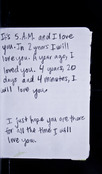 It's 5 A.M. and I love
you. In 2 years I will
love you. A year ago, I
loved you. 4 years, 20
days and 4 minutes, I
will love you.
I just hope you are there
for all the time I will
love you.